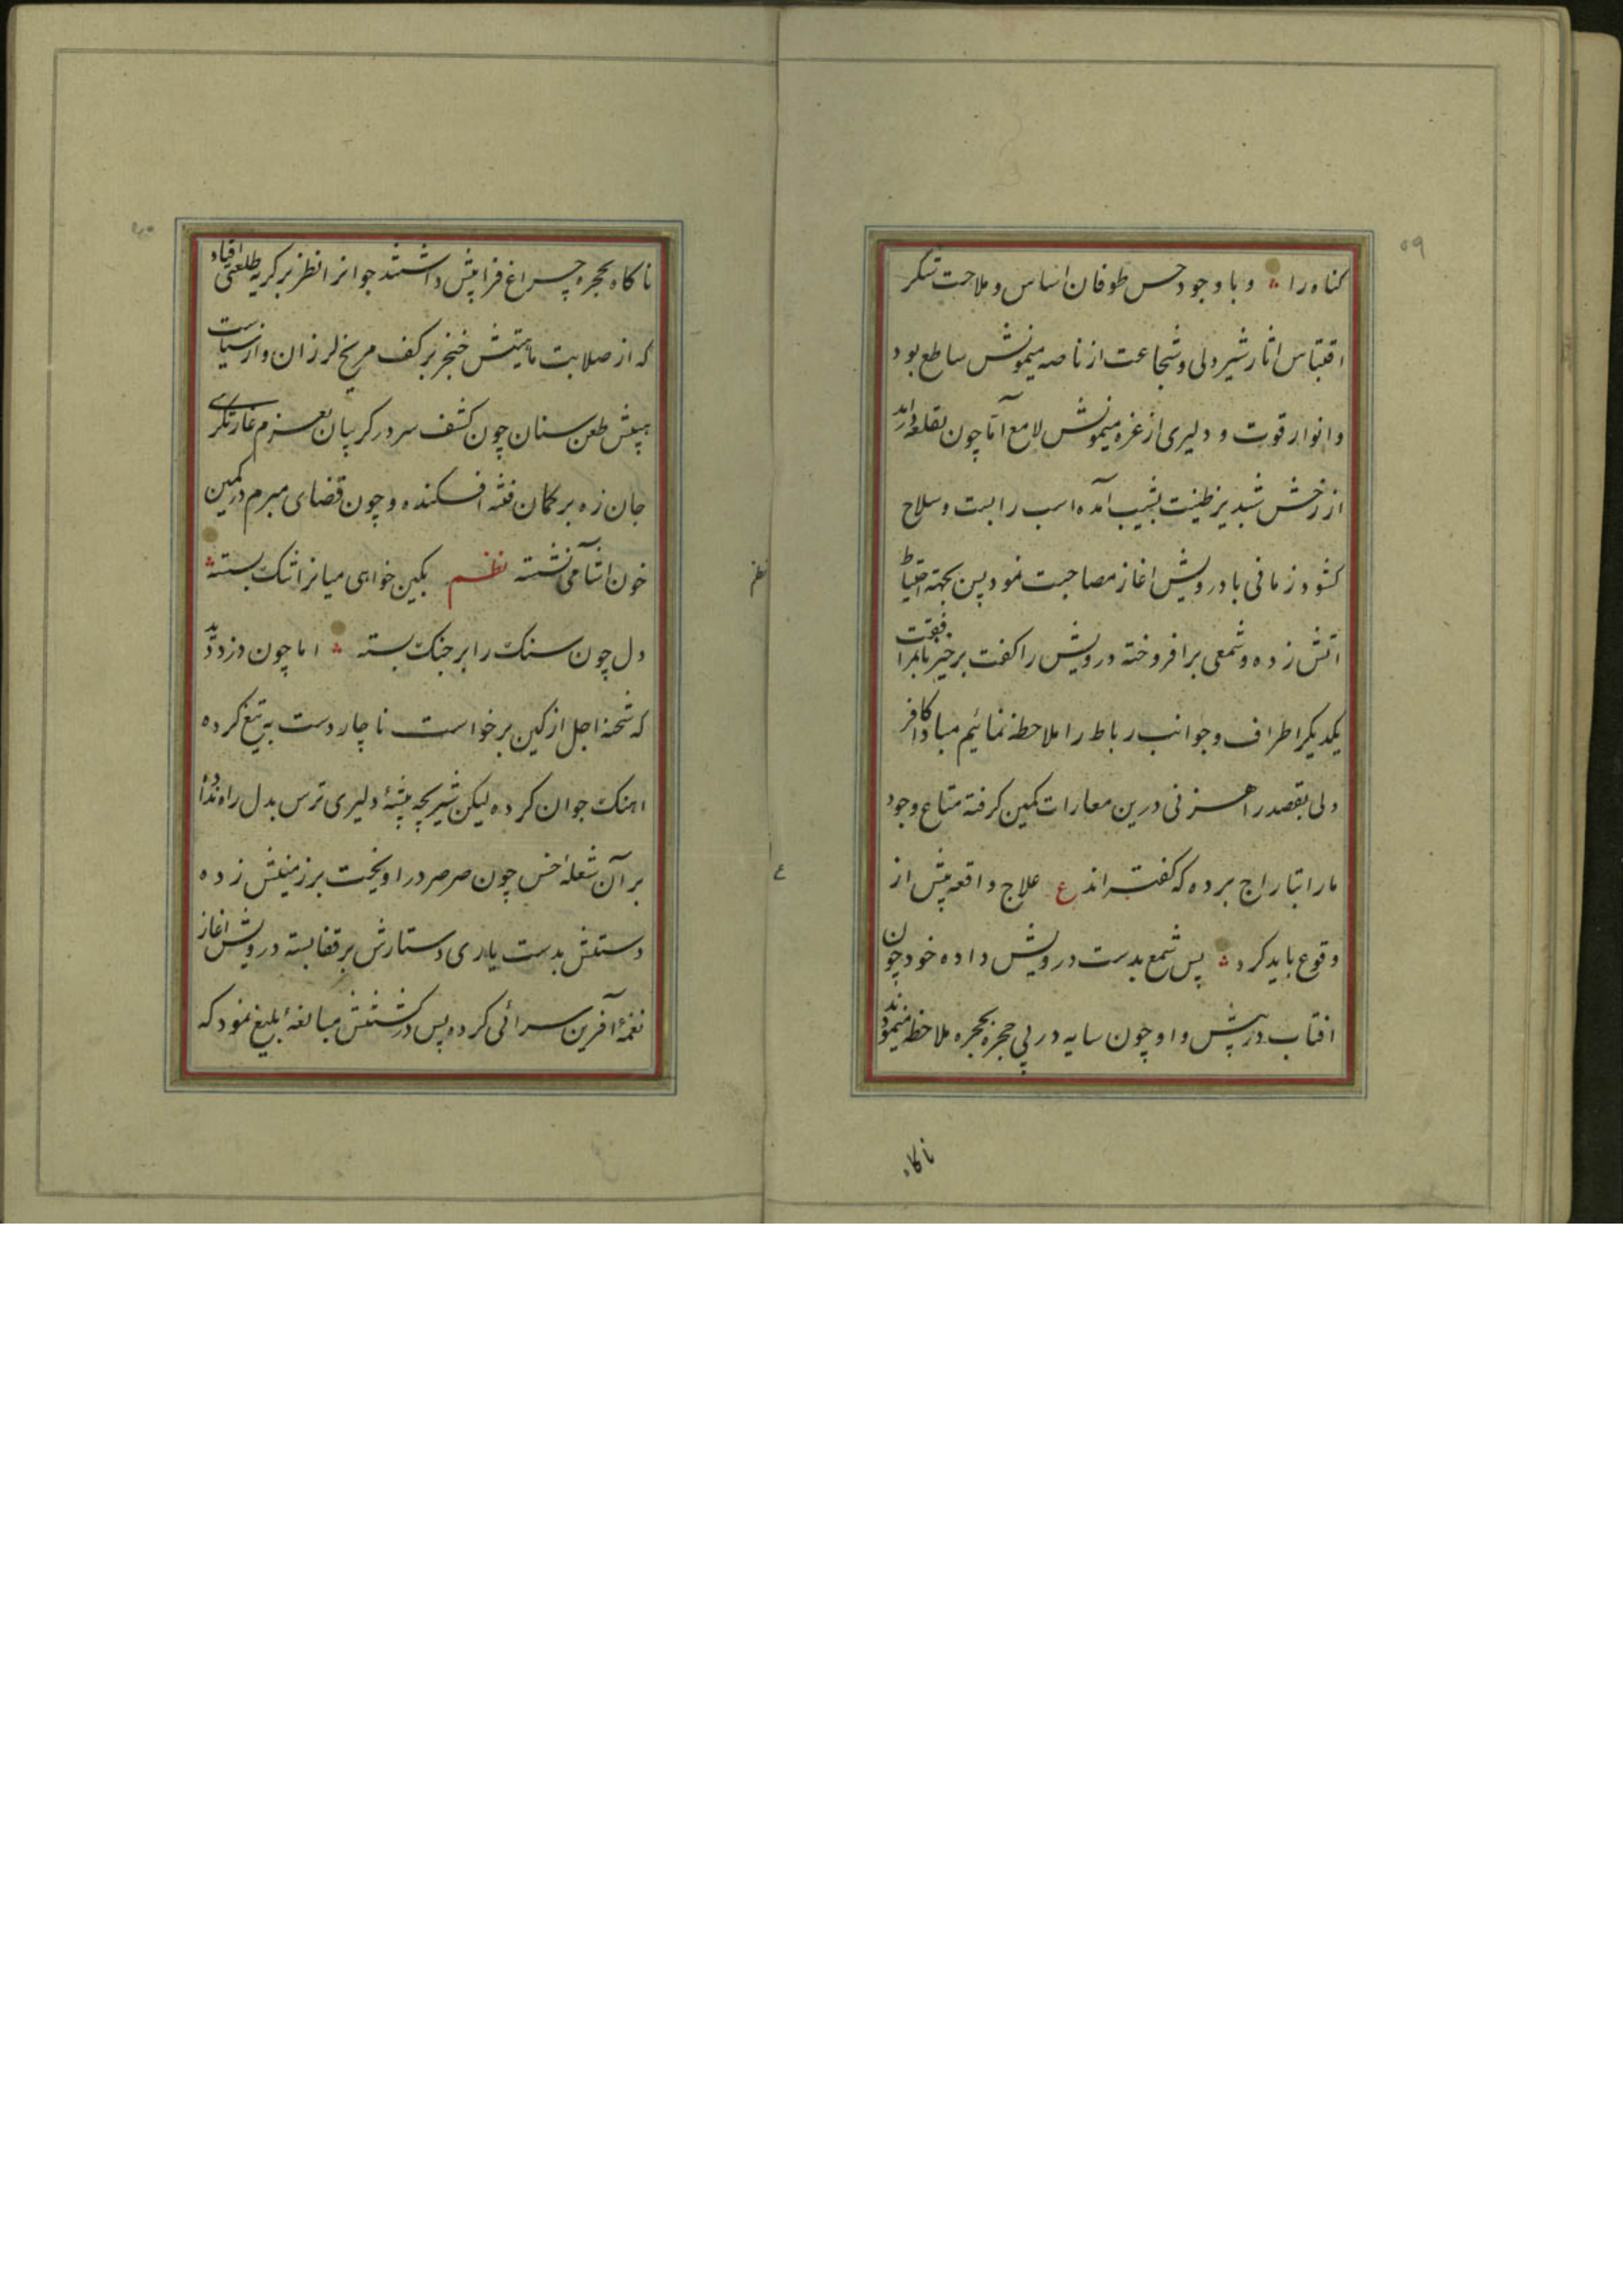 ۵۹
کناه را ؞ و با وجود حس طوفان اساس و ملاحت شکر
اقتباس اثار شیر دلی و شجاعت از ناصه میمونش ساطع بود
و انوار قوت و دلیری از غره میمونش لامع آما چون بقلعه دراید
از رخش شبدیز طینت بشیب آمده اسب را بست و سلاح
کشود زمانی با درویش اغاز مصاحبت نمود پس بجهته احتیاط
اتش زده و شمعی برافروخته درویش را کفت برخیز تا بمرافقت
یکدیکر اطراف و جوانب رباط را ملاحظه نمائیم مبادا کافر
دلی بقصد راهزنی درین مغارات کمین کرفته متاع وجود
ما را بتاراج برده که کفته‌اند ع علاج واقعه پیش از
وقوع باید کرد ؞ پس شمع بدست درویش داده خود چون
افتاب در پیش و او چون سایه در پی حجره بحجره ملاحظه میمودند
ناکاه
۶۰
ناکاه بحجره چراغ فرا پیش داشتند جوانرا نظر بر کریه طلعتی افتاد
که از صلابت خنجر بر کف مریخ لرزان و از سیاست
پیش طعن سنان چون کشف سر در کریبان بعزم غارتکری
جان زه بر کمان فتنه افکنده و چون قضای مبرم در کمین
خون اشامی نشسته نظم بکین خواهی میانرا تنک بسته ؞
دل چون سنک را بر جنک بسته ؞ اما چون دزد دید
که شحنه اجل از کمین برخواست ناچار دست به تیغ کرده
اهنک جوان کرده لیکن شیر بچه بیشهٔ دلیری ترس بدل راه نداده
بر آن شعلهٔ خس چون صرصر در اویخت بر زمینش زده
دستش بدست یاری دستارش بر قفا بسته درویش اغاز
نغمهٔ آفرین سرائی کرده پس در کشتنش مبالغهٔ بلیغ نمود که
نظم
ع